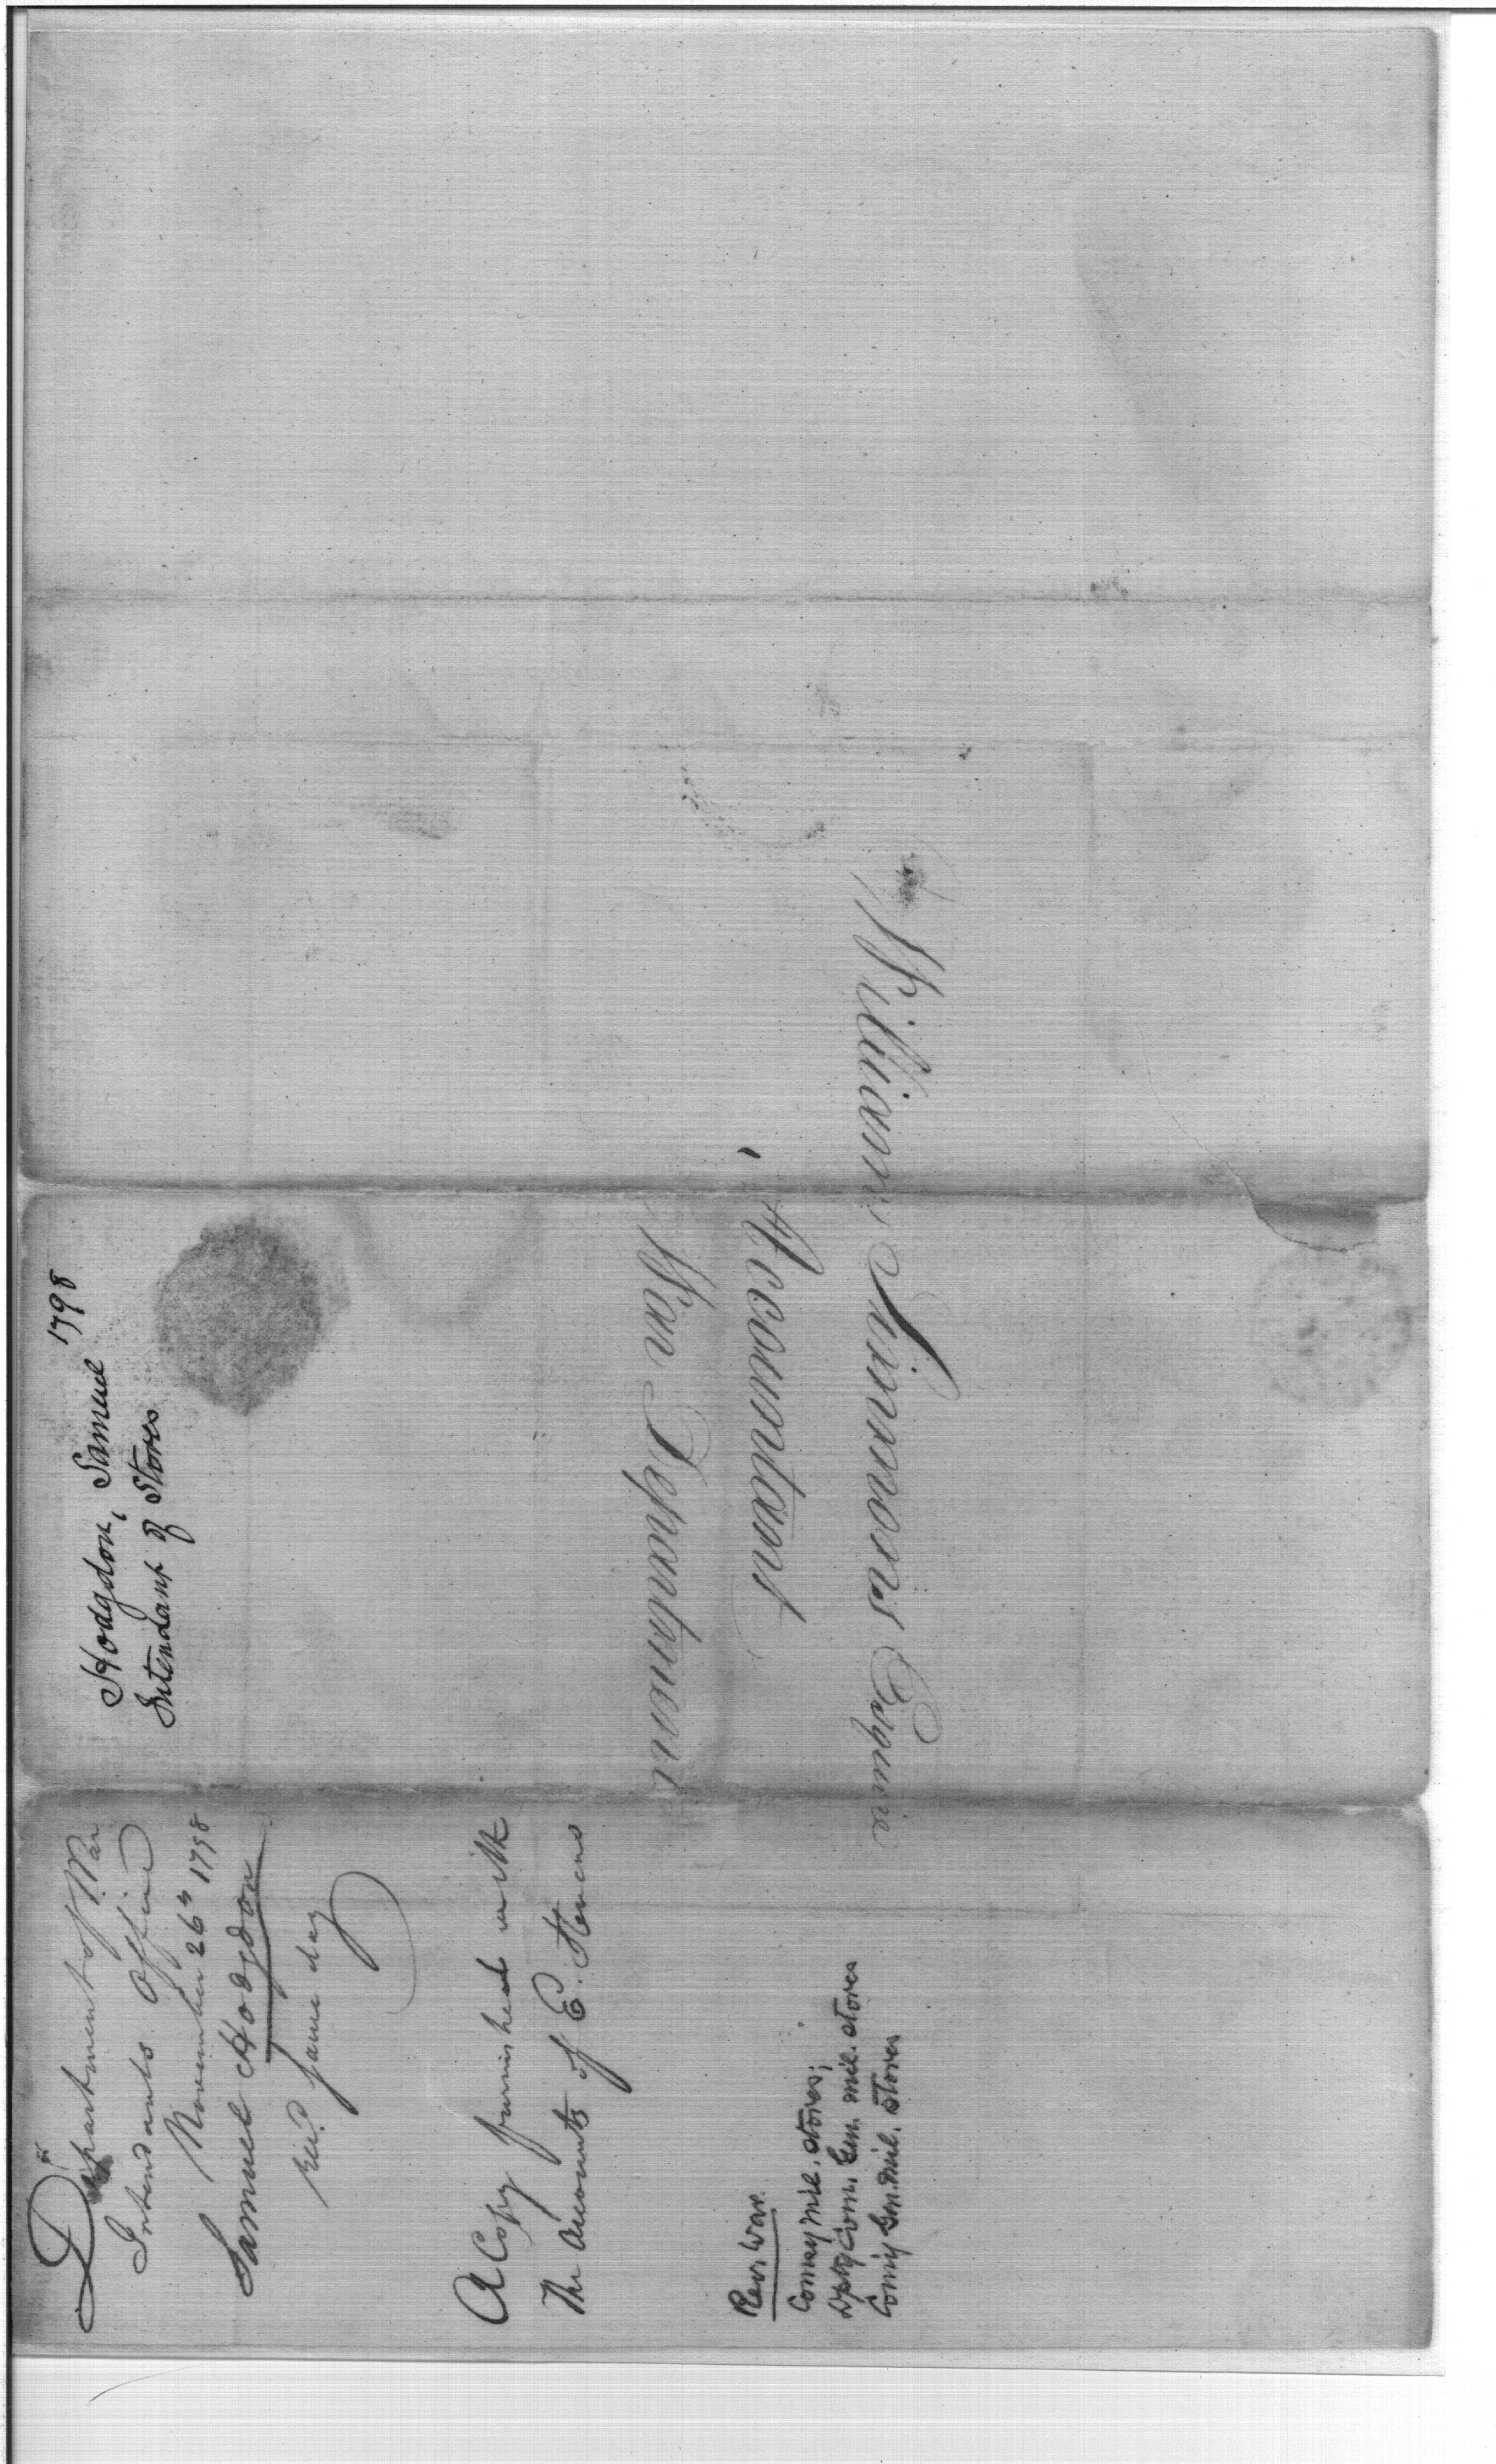 Department of War
Intendants Office
November 26th 1798
Samuel Hodgdon
Recd. same day
A Copy furnished with
the Accounts of E. Stevens
Rev. War.
Comsy mil. stores;
Dpty Com. Gen. mil. stores
Comsy Gen. mil. stores
Hodgdon, Samuel 1798
Intendant of Stores
William Simmons Esquire
Accountant
War Department